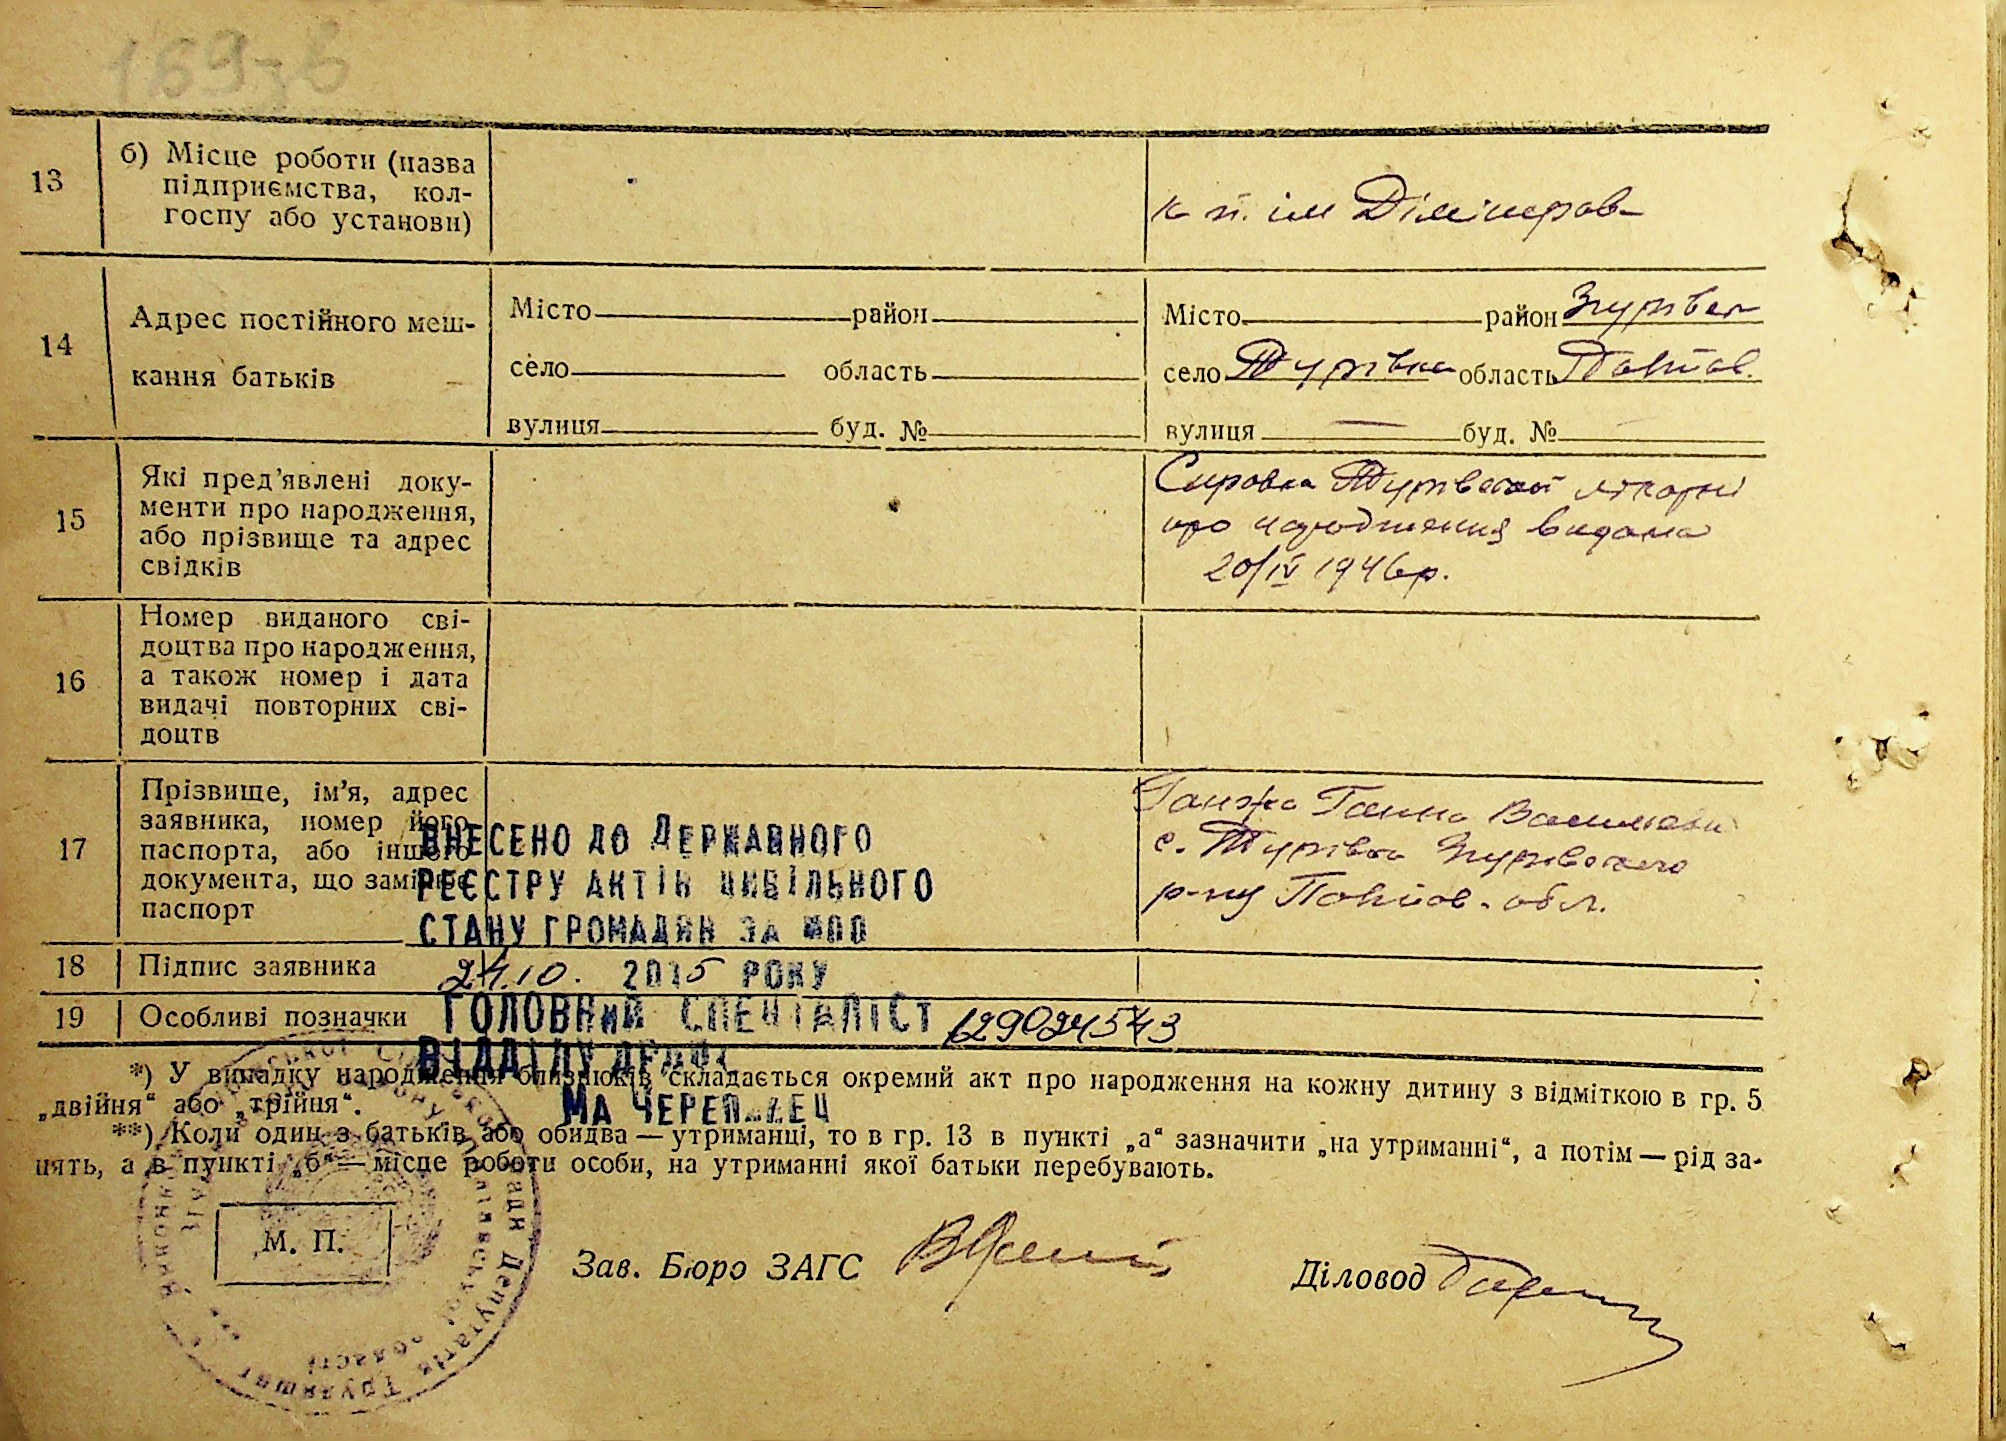 169 зв
13
б) Місце роботи (назва
підприємства, кол-
госпу або установи)
к п. ім Дімітрова
14
Адрес постійного меш-
кання батьків
Місто район
село область
вулиця буд. №
Місто район Згурівсь
село Турівка область Полтав.
вулиця — буд. №
15
Які пред'явлені доку-
менти про народження,
або прізвище та адрес
свідків
Справка Турівської лікарні
про народження видана
20/IV 1946р.
16
Номер виданого сві-
доцтва про народження,
а також номер і дата
видачі повторних сві-
доцтв
17
Прізвище, ім'я, адрес
заявника, номер його
паспорта, або іншого
документа, що заміняє
паспорт
Ганжа Ганна
с. Турівка Згурівського
р-ну Полтав. обл.
ВНЕСЕНО ДО ДЕРЖАВНОГО
РЕЄСТРУ АКТІВ ЦИВІЛЬНОГО
СТАНУ ГРОМАДЯН ЗА
18
Підпис заявника
24.10. 2015 РОКУ
19
Особливі позначки
ГОЛОВНИЙ СПЕЦІАЛІСТ
ВІДДІЛУ
*) У випадку народження близнюків складається окремий акт про народження на кожну дитину з відміткою в гр. 5
„двійня“ або „трійня“.
**) Коли один з батьків або обидва — утриманці, то в гр. 13 в пункті „а“ зазначити „на утриманні“, а потім — рід за-
нять, а в пункті „б“ — місце роботи особи, на утриманні якої батьки перебувають.
М. П.
Зав. Бюро ЗАГС
Діловод
Депутатів Трудящих